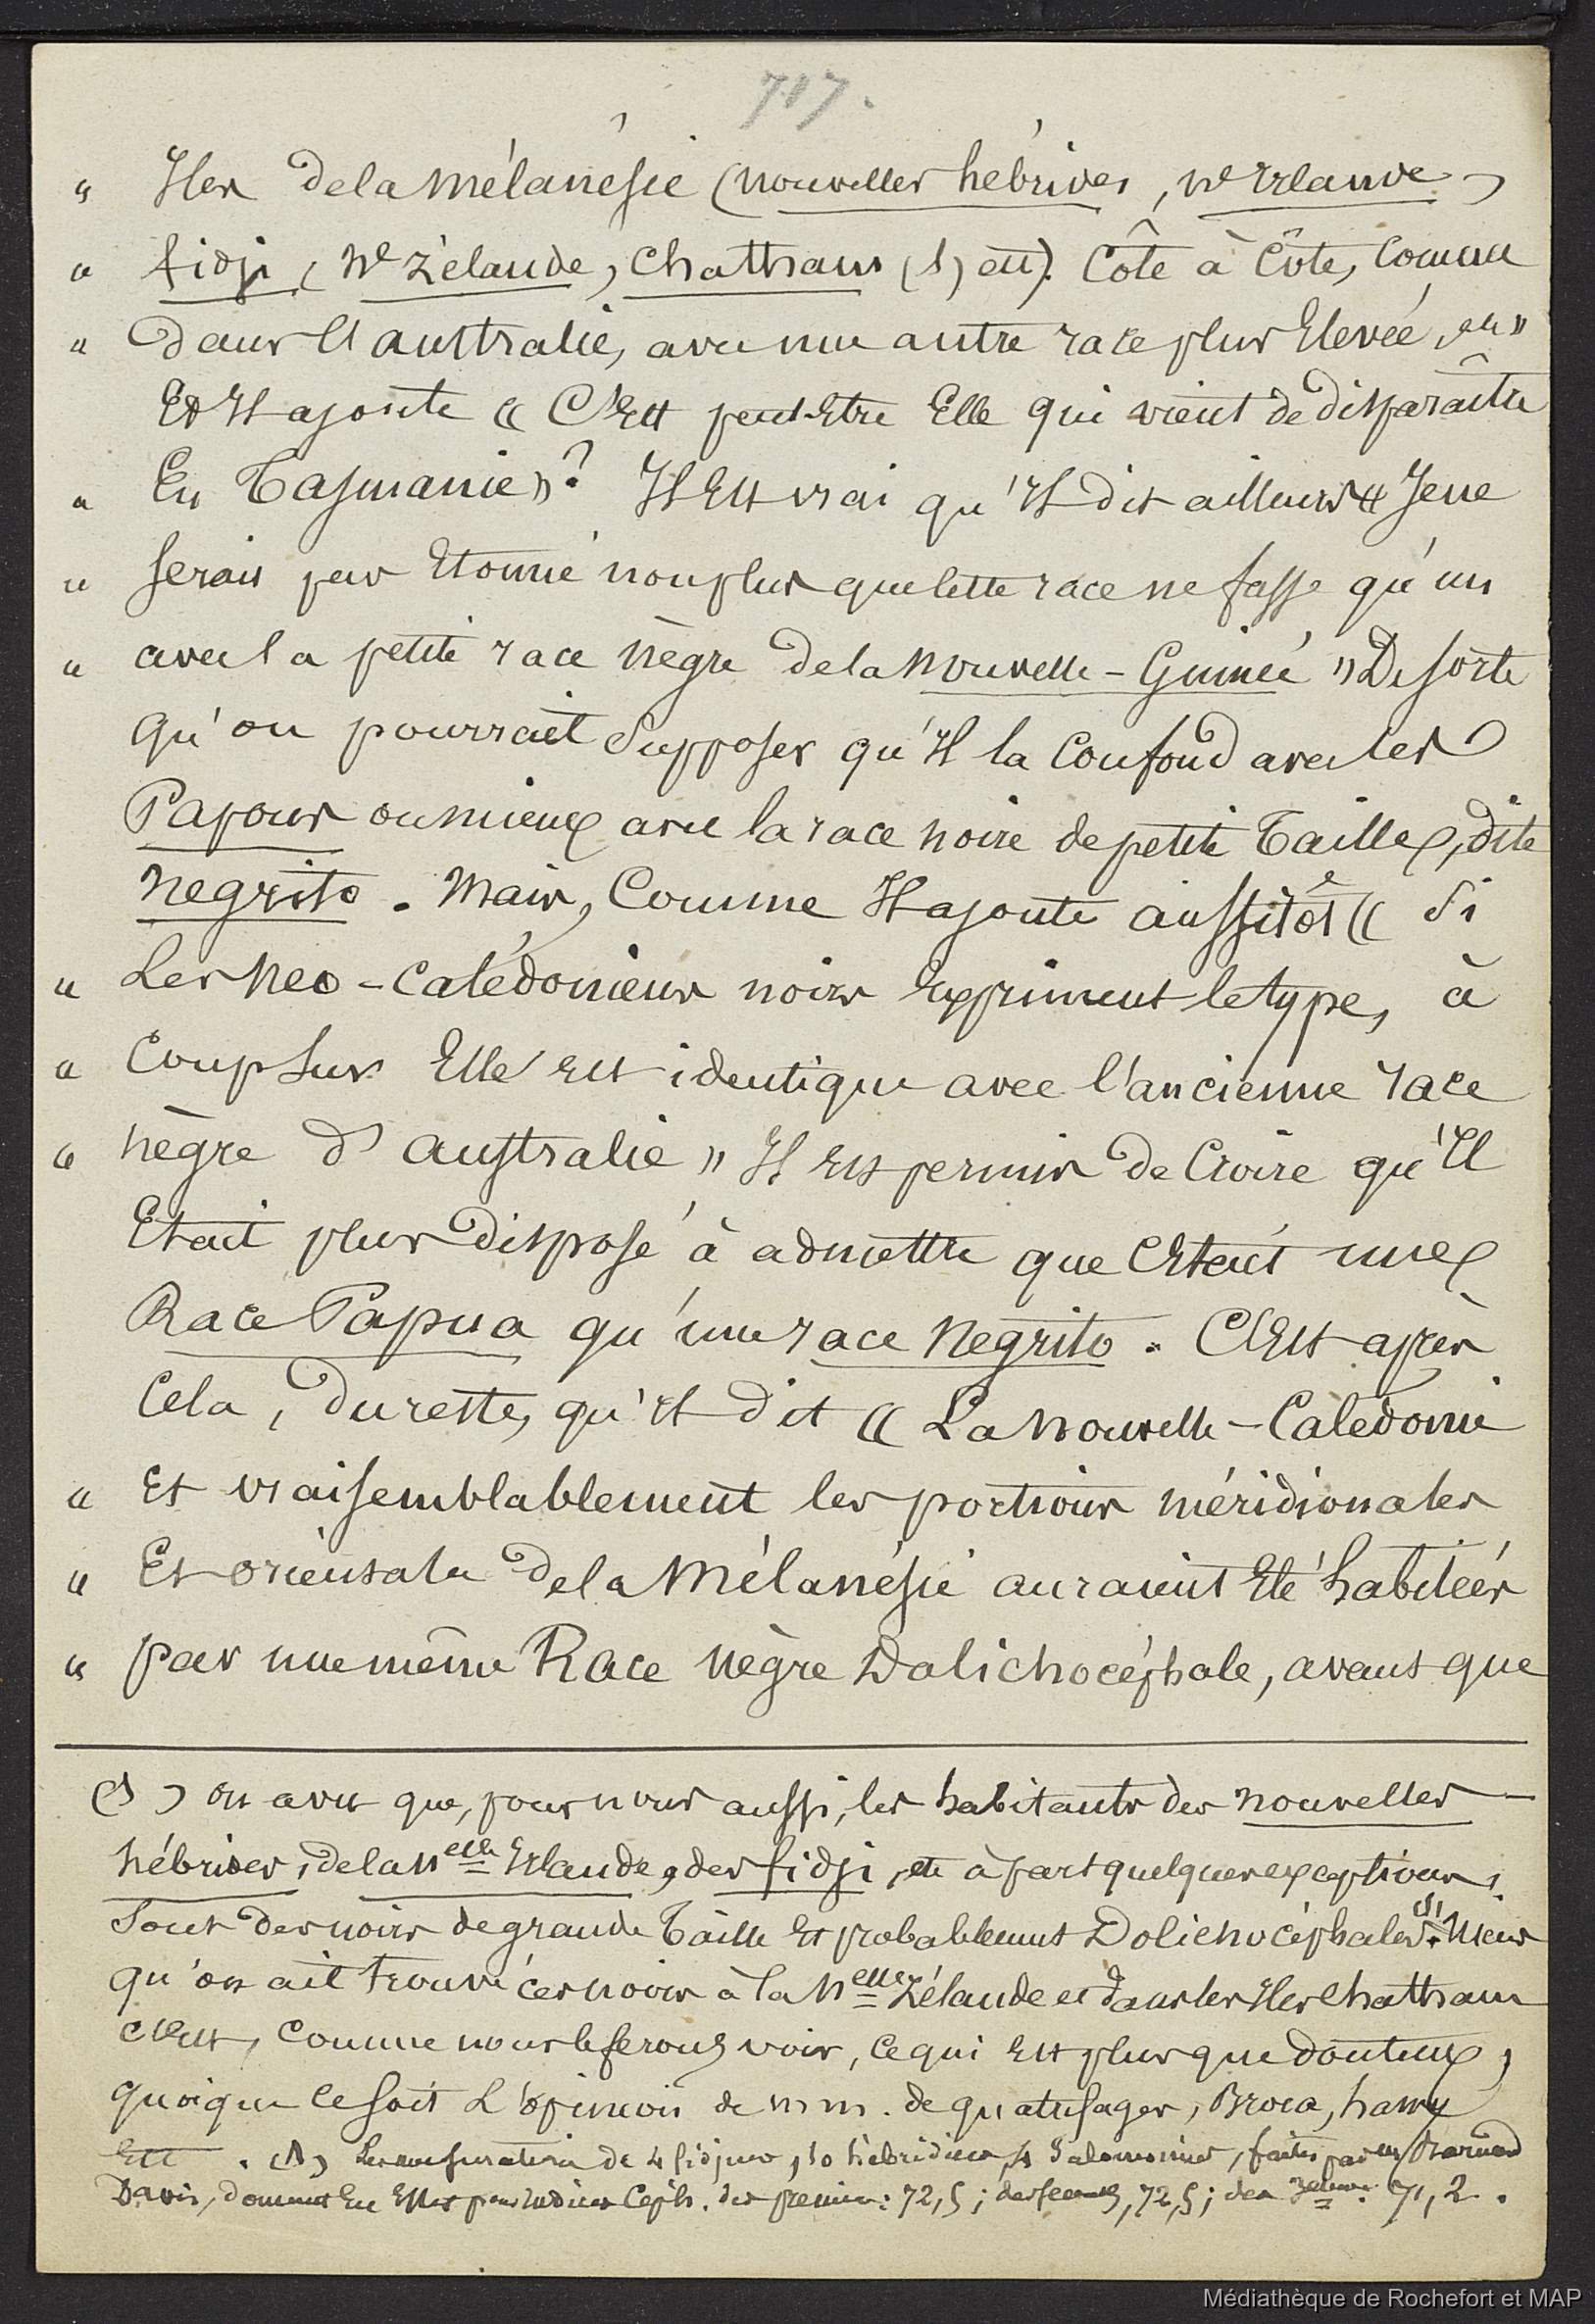 717.
" Iles de la Mélanésie (nouvelles hébrides, Nle Irlande,
" fidji, Nle Zélande, Chattham (1) etc). Côte à Côte, Comme
" dans l'australie, avec une autre race plus Elevée, etc"
Et Il ajoute « C'Est peut-Etre Elle qui vient de disparaître
" En Tasmanie »? Il Est vrai qu'Il dit ailleurs « Je ne
" serais pas Etonné non plus que cette race ne fasse qu'un
" avec la petite race nègre de la Nouvelle-Guinée » De sorte
qu'on pourrait Supposer qu'Il la Confond avec les
Papous ou mieux avec la race noire de petite Taille, dite
Negrito. Mais, Comme Il ajoute aussitôt « Si
" Les Neo-Calédoniens noirs Expriment le type, à
" Coup Sur Elle Est identique avec l'ancienne race
" nègre d'australie » Il Est permis de Croire qu'Il
Etait plus disposé à admettre que C'Etait une
Race Papua qu'une race Negrito. C'Est après
Cela, du reste, qu'Il dit « La Nouvelle-Calédonie
" Et vraisemblablement les portions méridionales
" Et orientales de la Mélanésie auraient Eté habitées
" par une même Race nègre Dolichocéphale, avant que
(1) on a vu que, pour nous aussi, les habitants des nouvelles-
hébrides, de la Nelle Irlande, des fidji, etc à part quelques exceptions,
Sont des noirs de grande Taille Et probablement Dolichocéphales (1). Mais
qu'on ait trouvé ces noirs à la Nelle Zélande et dans les Iles Chattham
C'Est, Comme nous le ferons voir, ce qui Est plus que douteux,
quoique Ce soit L'opinion de mm. de quatrefages, Broca, hamy
Etc. (1) Les mensurations de 4 fidjiens, 10 hébridiens, 4 Salomoniens, faites par M. Barnard
Davis, donnent En Effet pour indices Céph. des premiers: 72,5; des seconds, 72,5; des 3emes: 71,2.
Médiathèque de Rochefort et MAP